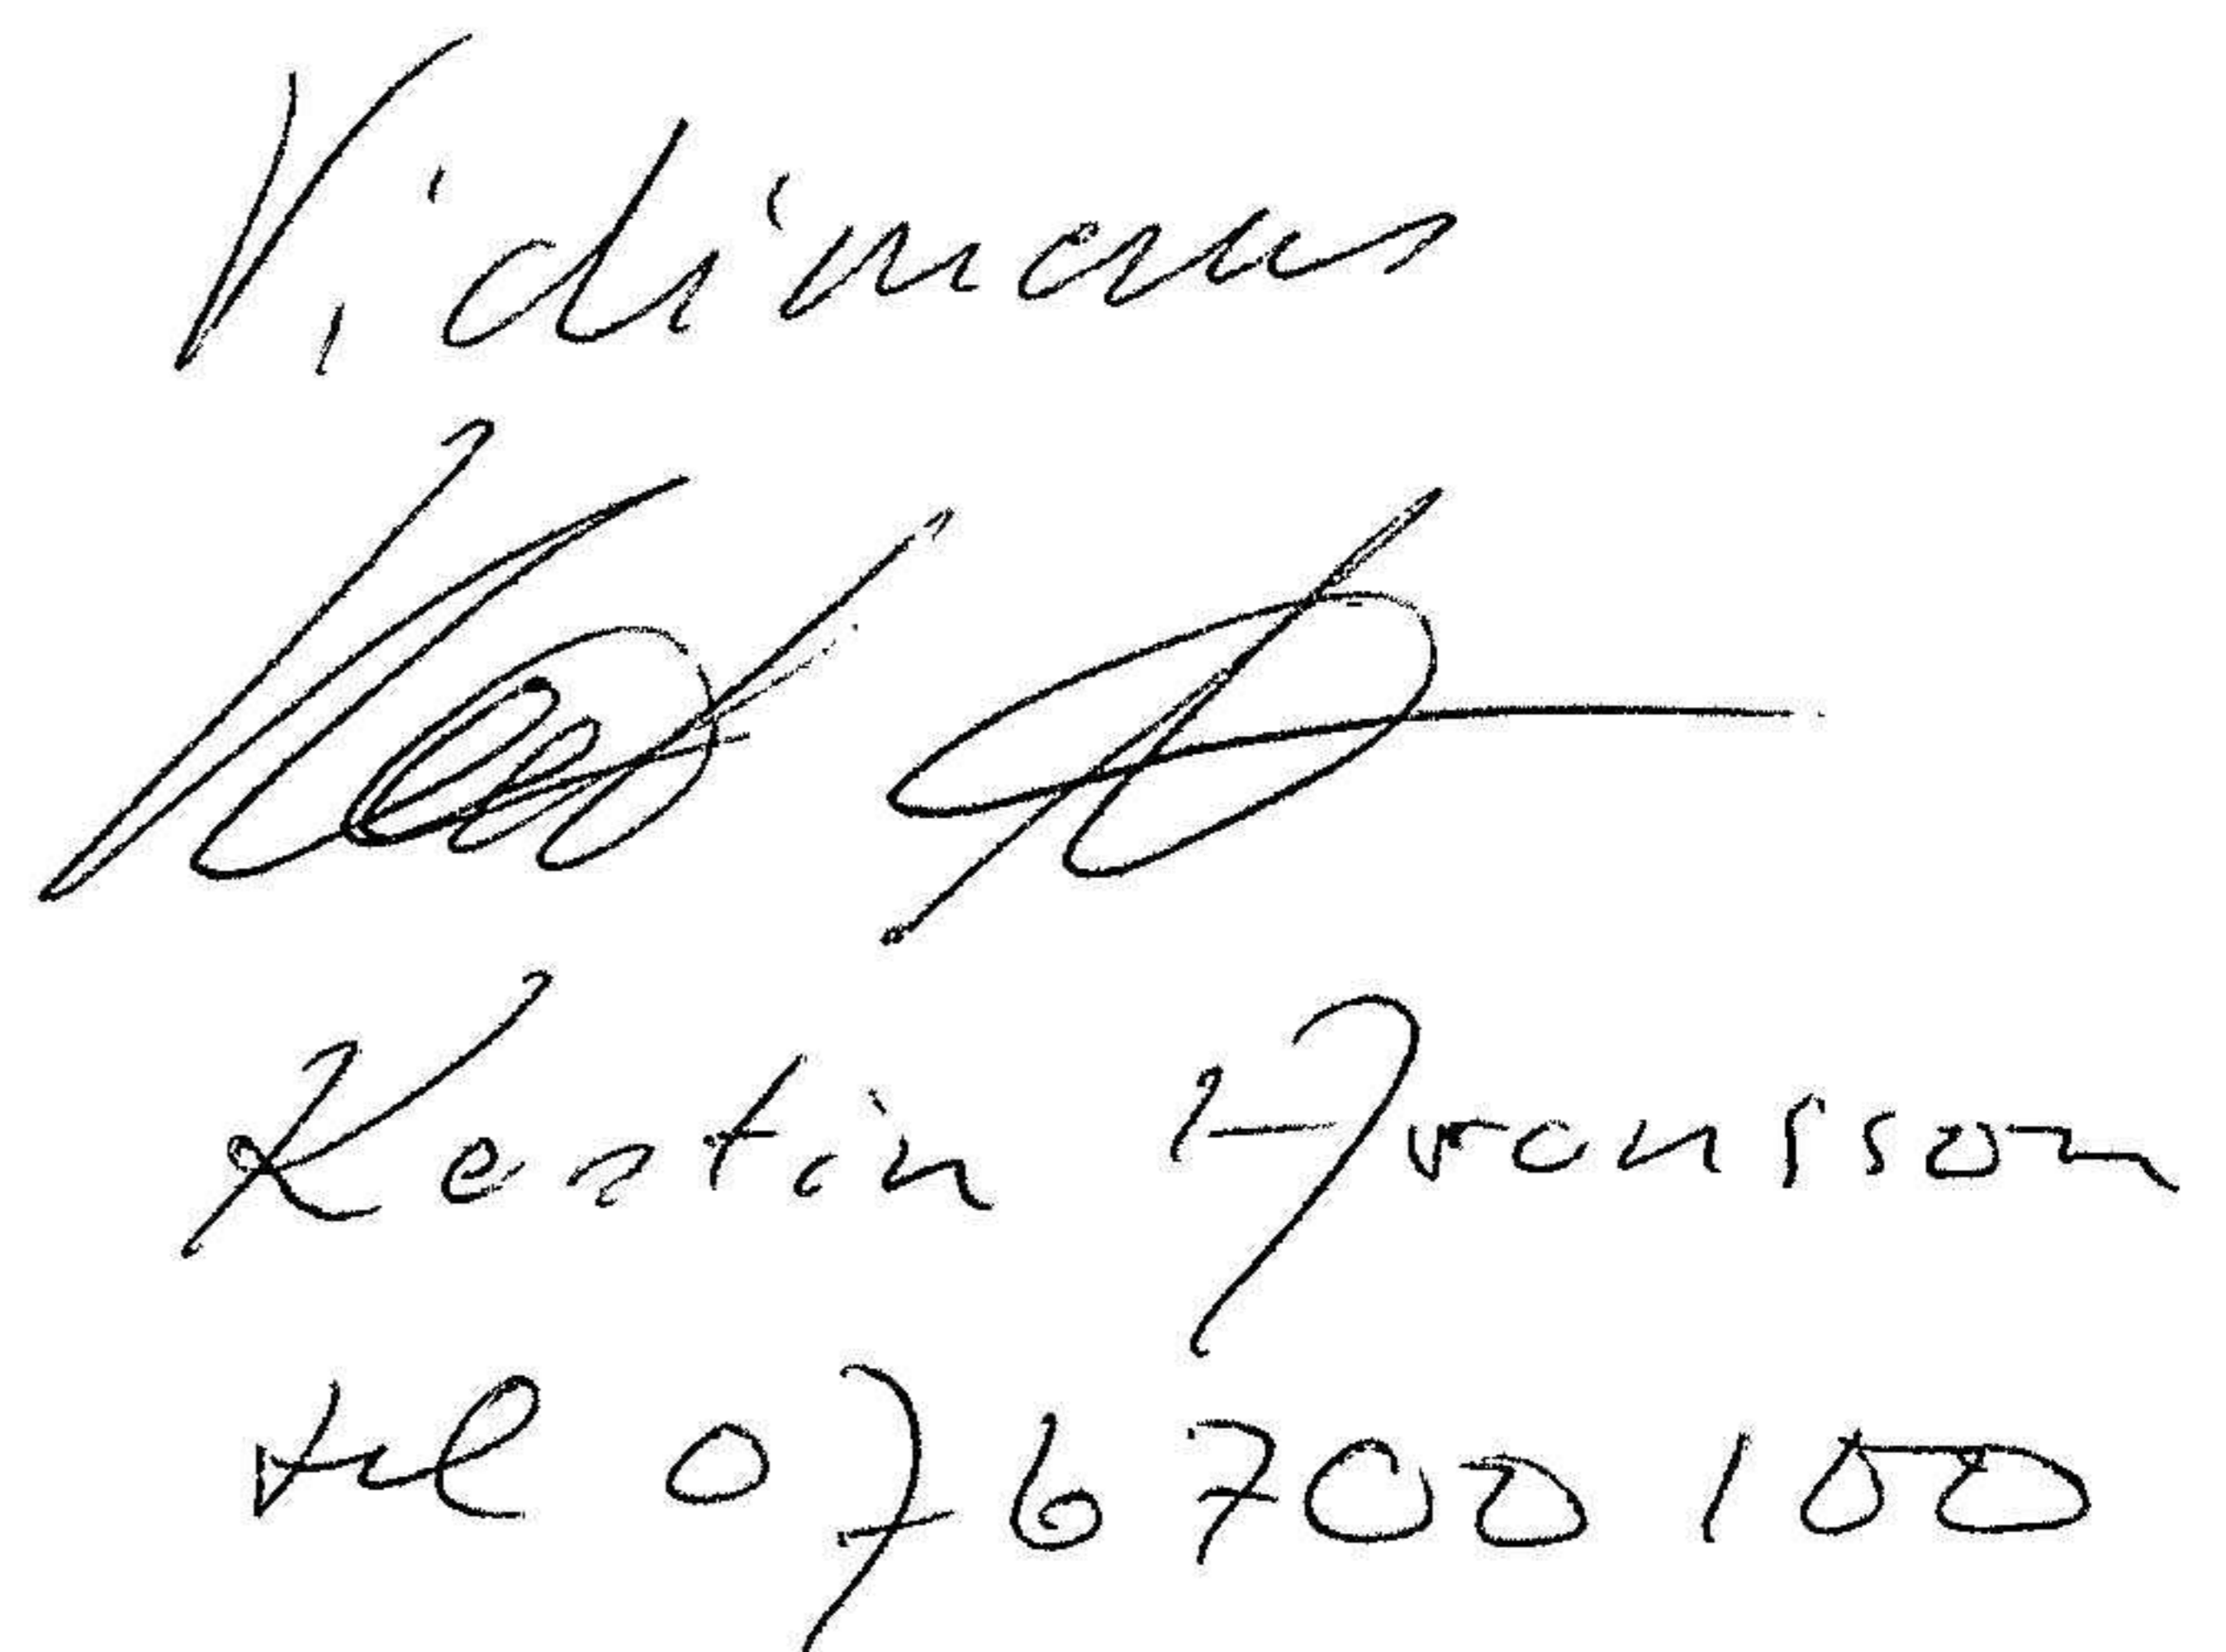 Vidimeras
Kerstin Aronsson
tel 076 700 100